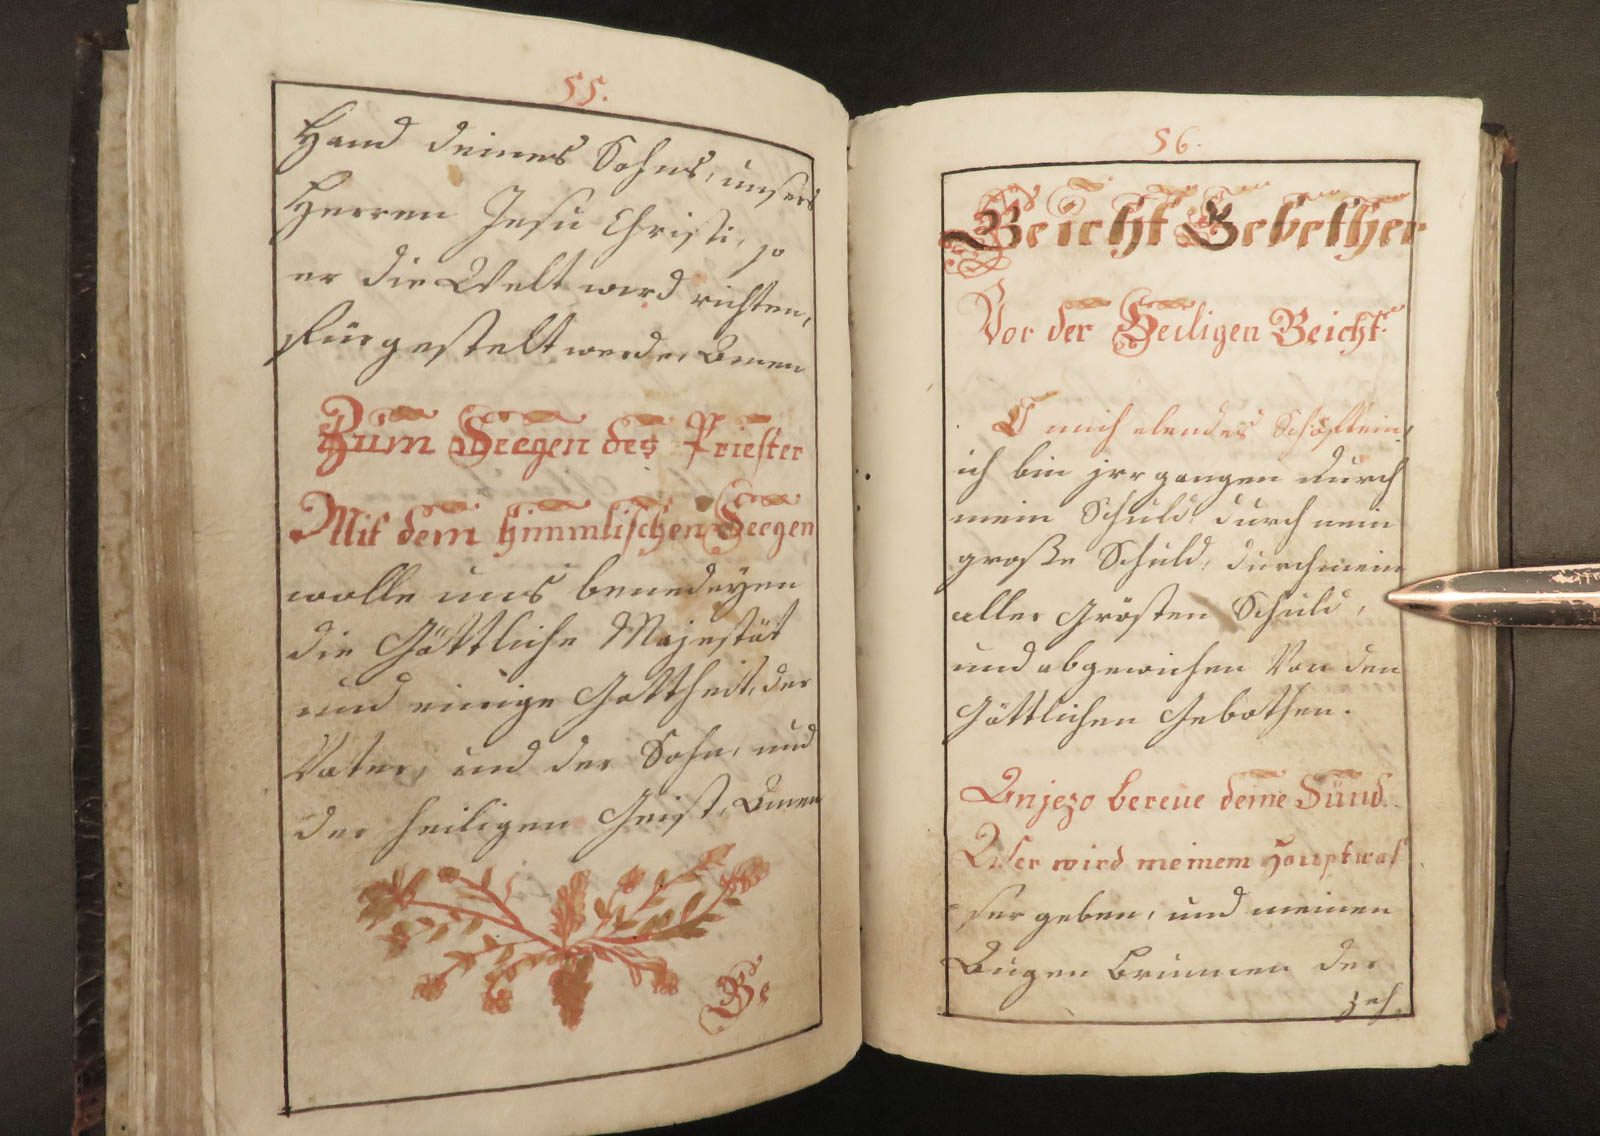 55.
Hand deines Sohns, unsers
Herren Jesu Christi, so
er die Welt wird richten,
fürgestelt werde, Amen
Zum Seegen des Priester
Mit dem himmlischen Seegen
wolle uns benedeyen
die Göttliche Majestät
und einige Gottheit, der
Vater, und der Sohn, und
der heiligen Geist, Amen
Be
56.
Beicht Gebether
Vor der Heiligen Beicht.
O mich elendes Schäflein,
ich bin jrrgangen durch
mein Schuld, durch mein
große Schuld, durch mein
aller Grösten Schuld,
und abgewichen Von den
Göttlichen Gebothen.
Anjezo bereue deine Sünd.
Wer wird meinem Haupt was
ser geben, und meinen
Augen Brunnen der
zeh,